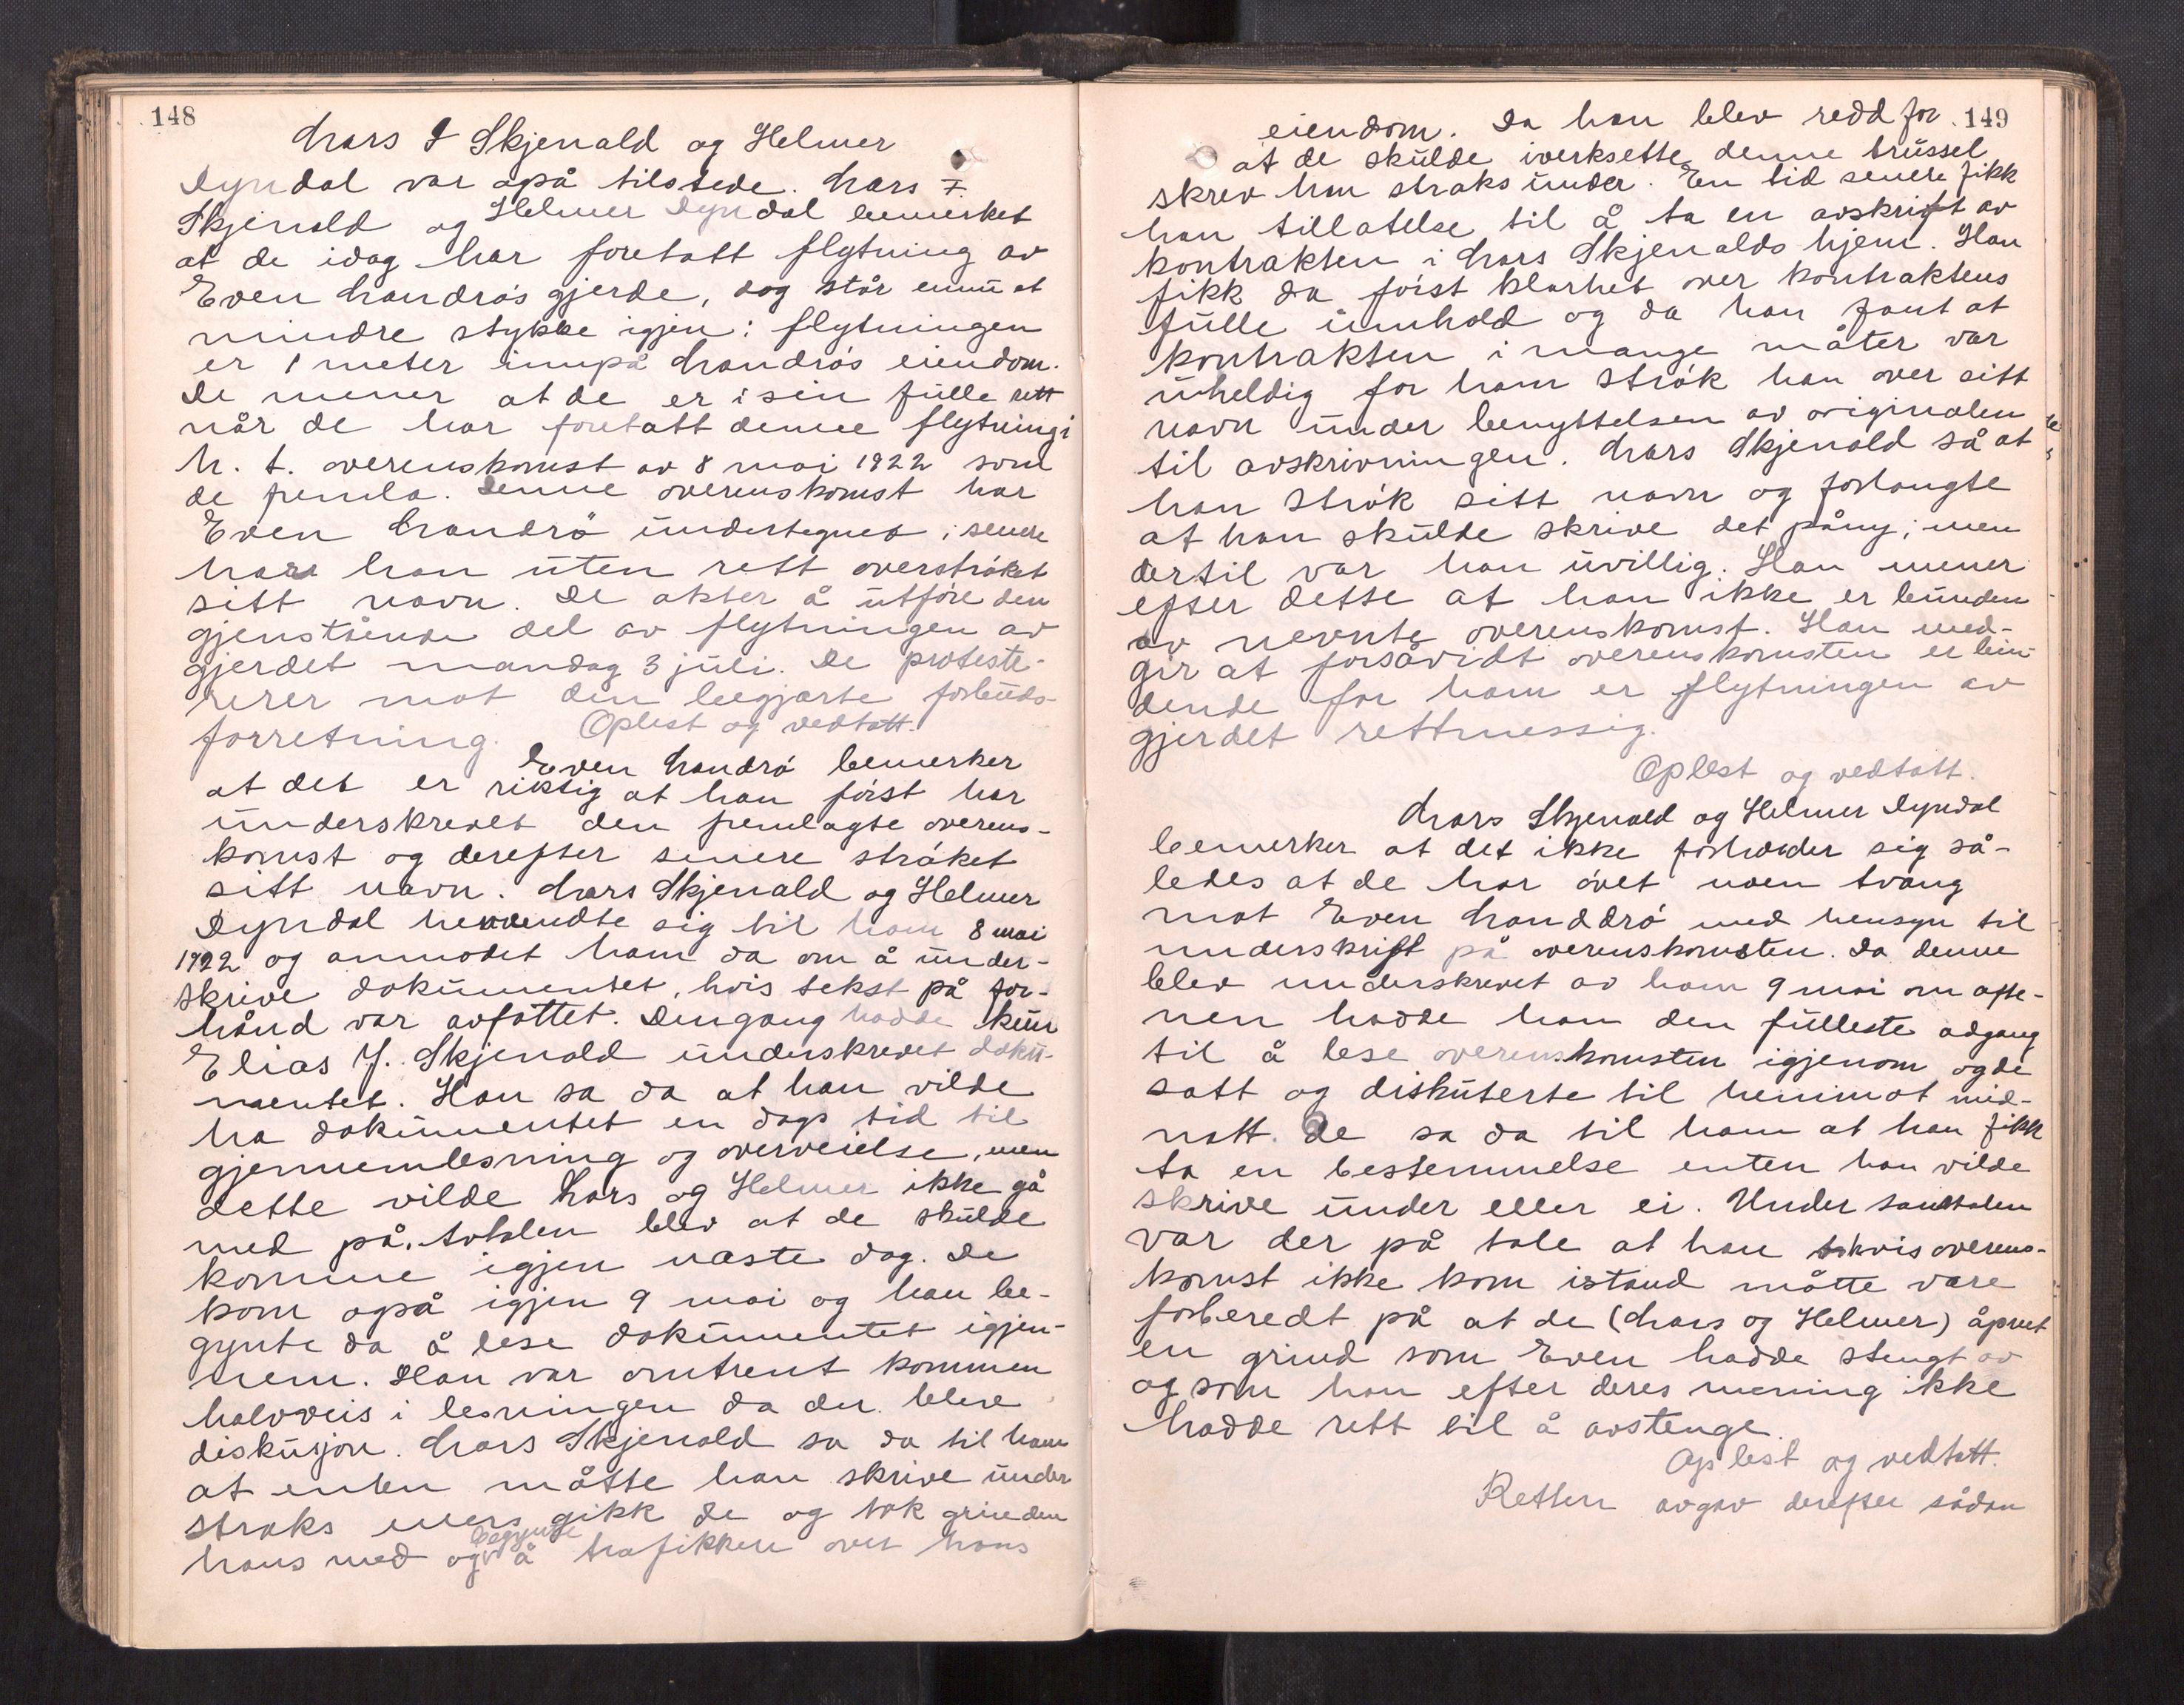 148
Lars I Skjenald og Helmer
Dyndal var også tilstede. Lars I.
Skjenald og Helmer Dyndal bemerket
at de idag har foretatt flytning av
Even Landrós gjerde, dog står ennu et
mindre stykke igjen: flytningen
er 1 meter innpå Landrós eiendom.
De mener at de er i sin fulle rett
når de har foretatt denne flytning i
h. t. overenskomst av 8 mai 1922 som
de fremla. Denne overenskomst har
Even Landró undertegnet; senere
har han uten rett overstróket
sitt navn. De akter å utfóre den
gjenstående del av flytningen av
gjerdet mandag 3 juli. De proteste-
rerer mot den begjærte forbuds-
forretning. Oplest og vedtatt.
Even Landró bemerker
at det er riktig at han fóist har
underskrevet den fremlagte overens-
komst og derefter senere stróket
sitt navn. Lars Skjenald og Helmer
Dyndal henvendte sig til ham 8 mai
1922 og anmodet ham da om å under-
skrive dokumentet, hvis tekst på for-
hånd var avfattet. Dengang hadde kun
Elias J. Skjenald underskrevet doku-
mentet. Han sa da at han vilde
ha dokumentet en dags tid til
gjennemlesning og overveielse, men
dette vilde Lars og Helmer ikke gå
med på. Avtalen blev at de skulde
komme igjen næste dag. De
kom også igjen 9 mai og han be-
gynte da å lese dokumentet igjen-
nem. Han var omtrent kommen
halvveis i lesningen da der blev
diskusjon. Lars Skjenald sa da til ham
at enten måtte han skrive under
straks ellers gikk de og tok grinden
hans med og begynte å trafikkere over hans
149
eiendom. Da han blev redd for
at de skulde iverksette denne trussel
skrev han straks under. En tid senere fikk
han tillatelse til å ta en avskrift av
kontrakten i Lars Skjenalds hjem. Han
fikk da fóist klarhet over kontraktens
fulle innhold og da han fant at
kontrakten i mange måter var
uheldig for ham strók han over sitt
navn under benyttelsen av originalen
til avskrivningen. Lars Skjenald så at
han strók sitt navn og forlangte
at han skulde skrive det påny; men
dertil var han uvillig. Han mener
efter dette at han ikke er bunden
av nevnte overenskomst. Han med-
gir at forsåvidt overenskomsten er bin-
dende for ham er flytningen av
gjerdet rettmessig.
Oplest og vedtatt.
Lars Skjenald og Helmer Dyndal
bemerker at det ikke forholder sig så-
ledes at de har óvet noen tvang
mot Even Landdró med hensyn til
underskrift på overenskomsten. Da denne
blev underskrevet av ham 9 mai om afte-
nen hadde han den fulleste adgang
til å lese overenskomsten igjenom og de
satt og diskuterte til henimot mid-
natt. De sa da til ham at han fikk
ta en bestemmelse enten han vilde
skrive under eller ei. Under samtalen
var der på tale at han hvis overens-
komst ikke kom istand måtte være
forberedt på at de (Lars og Helmer) åpnet
en grind som Even hadde stengt av
og som han efter deres mening ikke
hadde rett til å avstenge.
Oplest og vedtatt.
Retten avgav derefter sådan